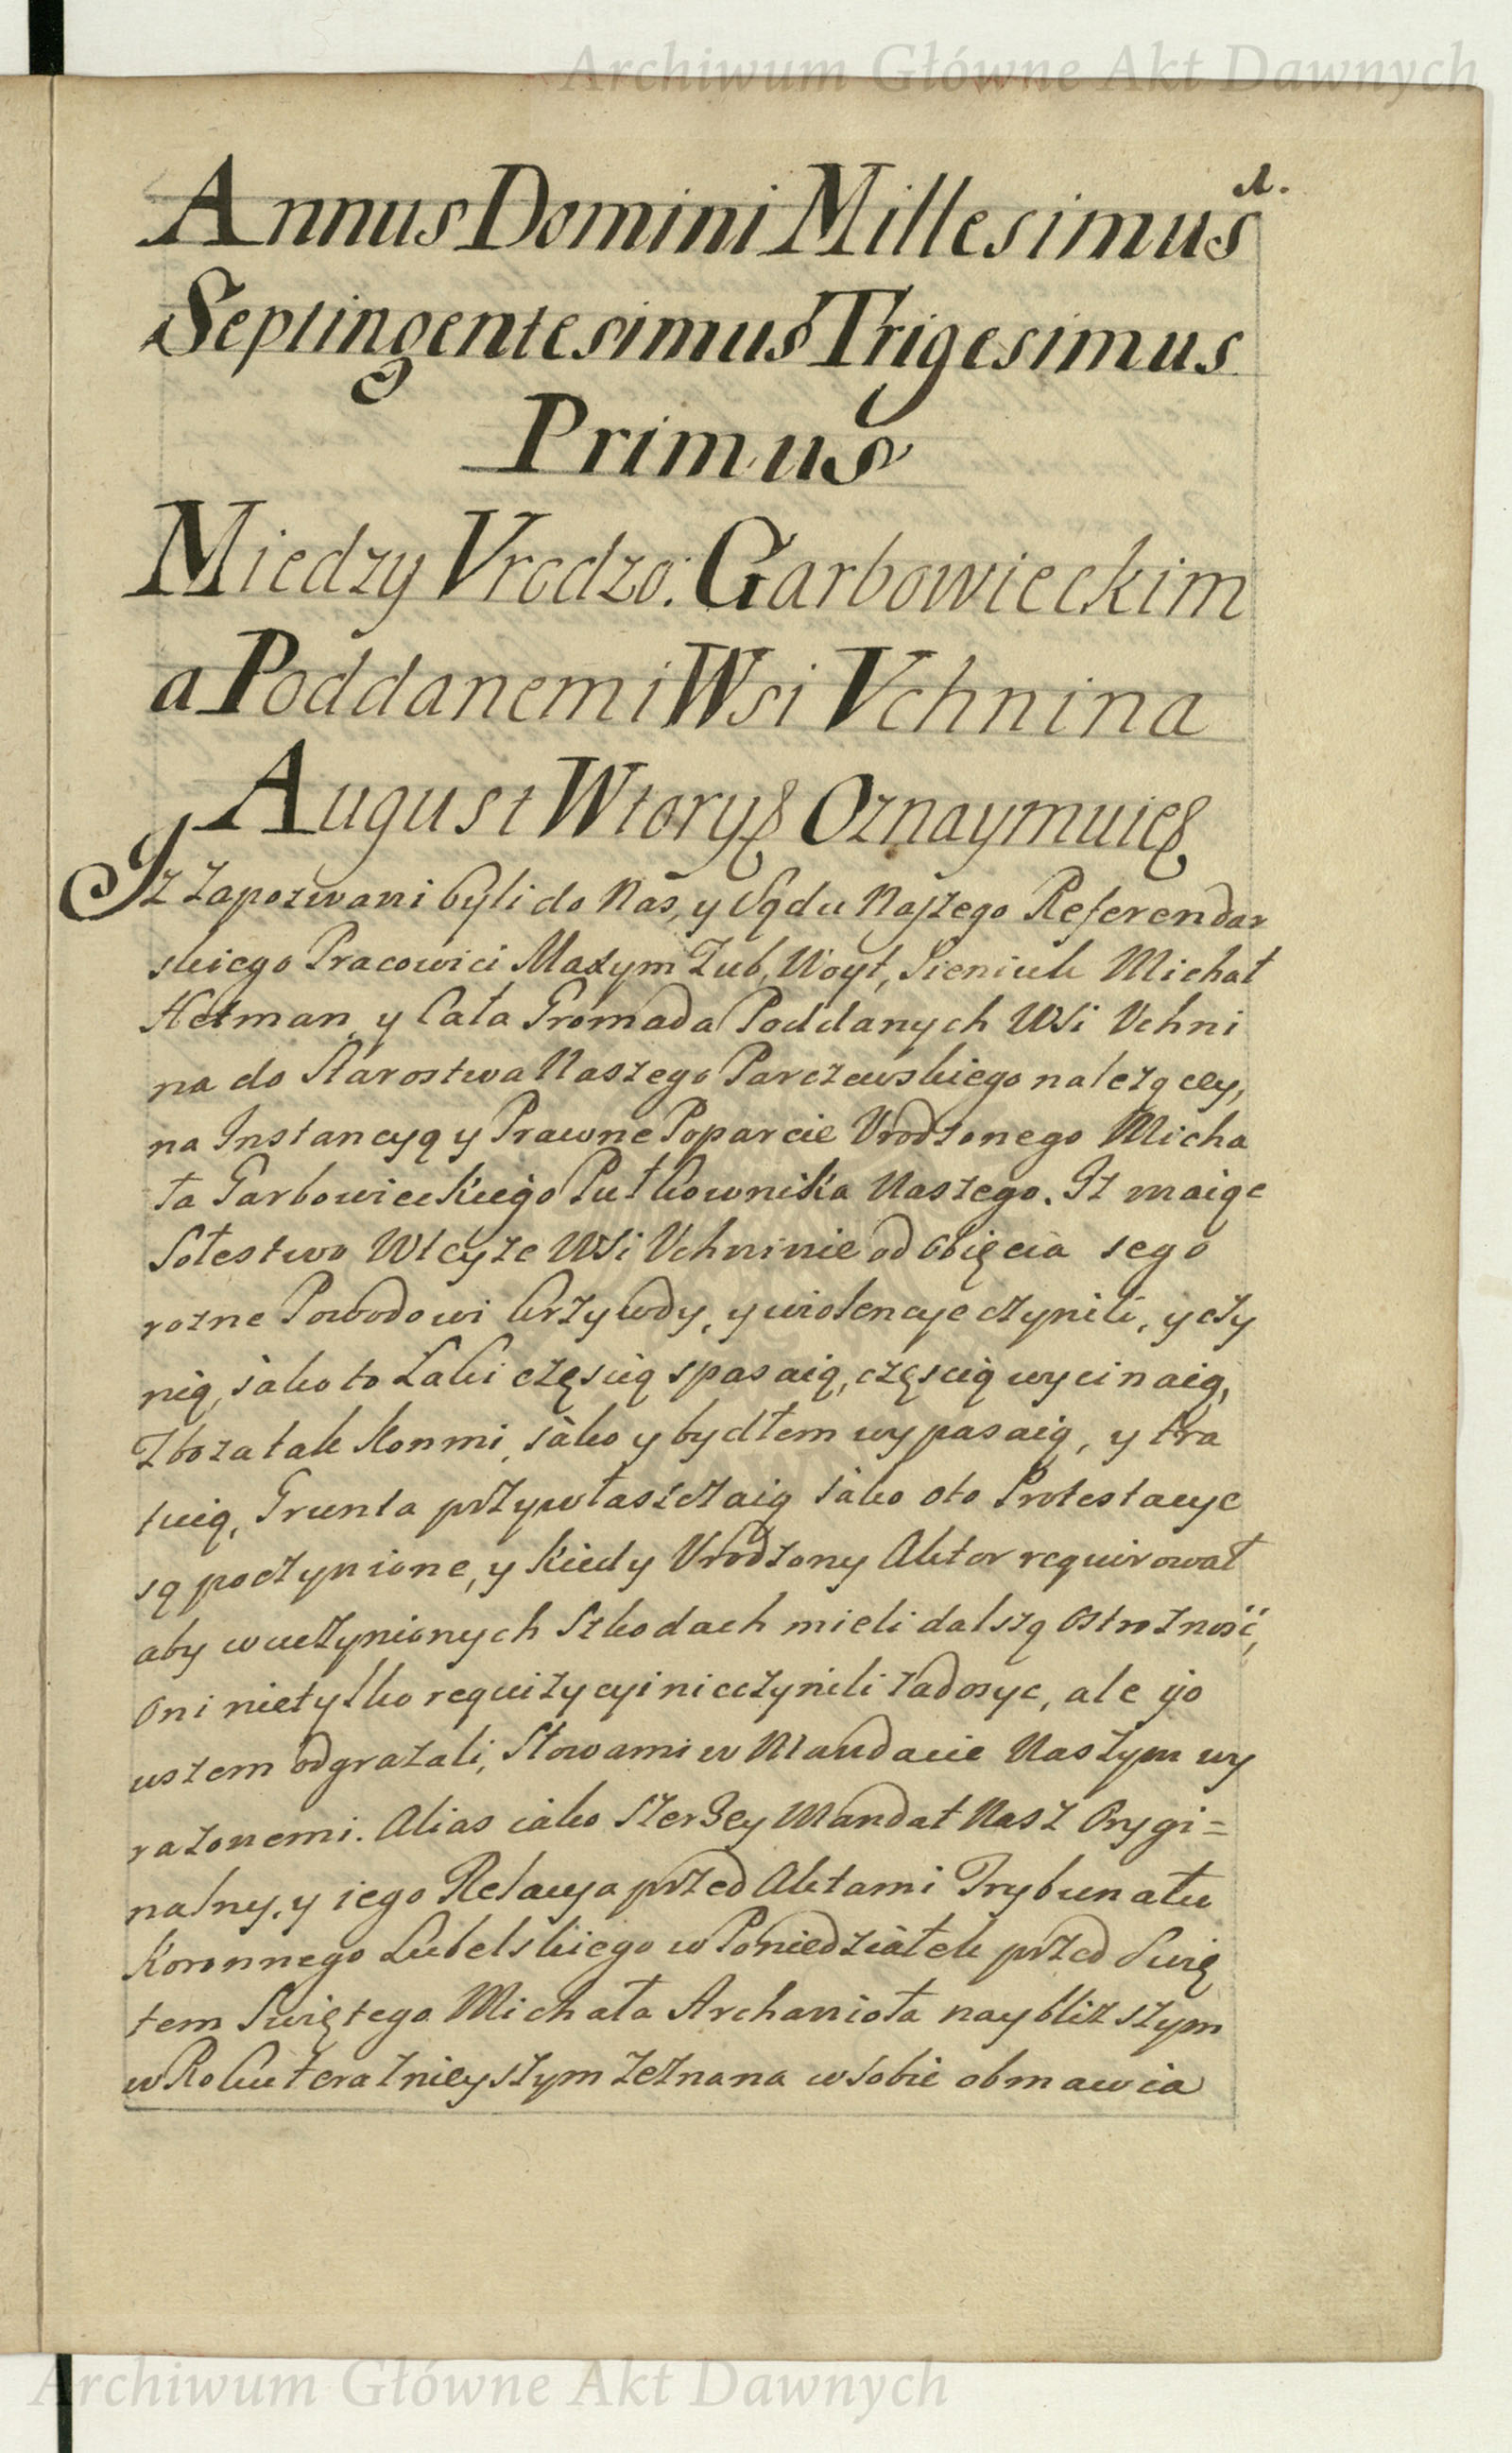 Archiwum Główne Akt Dawnych
1.
Annus Domini Millesimus
Septingentesimus Trigesimus
Primus
Miedzy Vrodzo: Garbowieckim
a Poddanemi Wsi Vchnina
August Wtory & Oznaymuie &
Jz zapozwani byli do Nas, y Sądu Naszego Referendar
skiego Pracowici Maxym Zub, Woyt, Sieniuk Michał
Hetman y Cała Gromada Poddanych Wsi Vchni
na do Starostwa Naszego Parczewskiego należący,
na Instancyą y Prawne Poparcie Vrodzonego Micha
ła Garbowieckiego Pułkownika Naszego. Iz maiąc
Sołestwo Wteyze Wsi Vchninie od obięcia iego
rozne Powodowi krzywdy, y wiolencye czynili, y czy
nią, iako to Łaki częscią spasaią, częscią wycinaią,
Zboza tak konmi, iako y bydłem wypasaią, y tra
tuią, Grunta przywłaszczaią iako oto Protestacye
są poczynione, y kiedy Vrodzony Aktor requirował
aby wuczynionych Szkodach mieli dalszą ostrożność,
oni nietylko requizycyi nieczynili zadosyc, ale ijo
uszem odgrazali, Słowami w Mandacie Naszym wy
razonemi. Alias iako szerzey Mandat Nasz Orygi=
nalny, y iego Relacya przed Aktami Trybunału
Koronnego Lubelskiego w Poniedziałek przed Swię
tem Swiętego Michała Archanioła naybliższym
w Roku teraznieyszym zeznana w sobie obmawia
Archiwum Główne Akt Dawnych